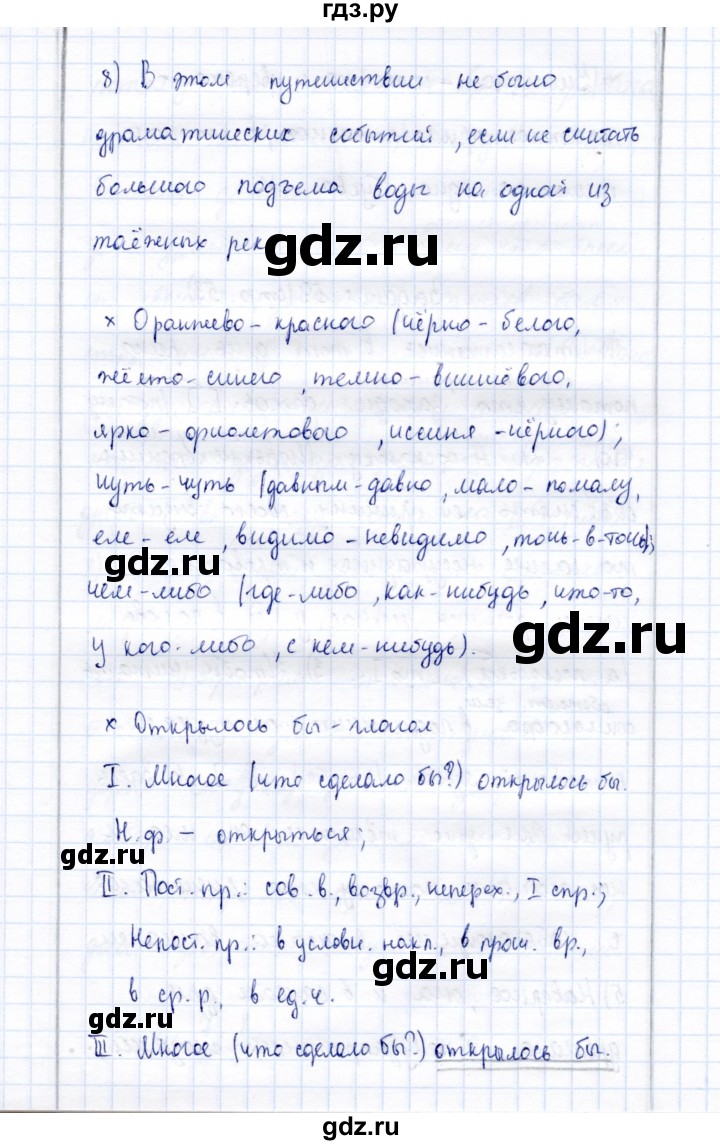 гдз.ру
8) В этом путешествии не было
драматических событий, если не считать
большого подъема воды на одной из
таёжных рек
gdz.ru
× Оранжево-красного (чёрно-белого,
жёлто-синего, темно-вишнёвого,
ярко-фиолетового, иссиня-чёрного);
чуть-чуть (давным-давно, мало-помалу,
еле-еле, видимо-невидимо, точь-в-точь);
gdz.ru
чем-либо (где-либо, как-нибудь, что-то,
gdz.ru
у кого-либо, с кем-нибудь).
× Открылось бы - глагол
I. Многое (что сделало бы?) открылось бы.
Н.ф - открыться;
gdz.ru
II. Пост. пр.: сов. в., возвр., неперех., I спр.;
Непост. пр.: в условн. накл., в прош. вр.,
gdz.ru
в ср. р., в ед. ч.
gdz.ru
III. Многое (что сделало бы?) открылось бы.
gdz.ru